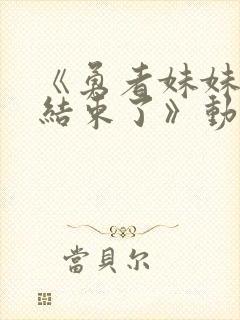 《勇者妹妹
結束了》動
當貝尔